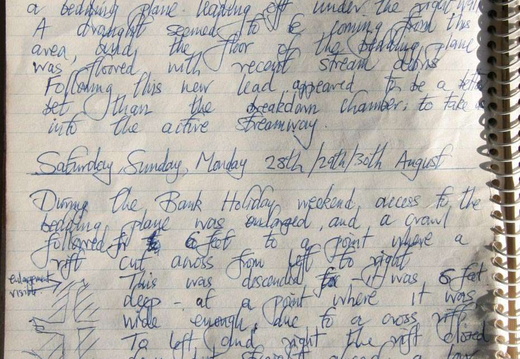 a bedding plane leading off under the right wall
A draught seemed to be coming from this
area, and the floor of the bedding plane
was floored with recent stream debris
Following this new lead appeared to be a better
bet than the breakdown chamber, to take us
into the active streamway.
Saturday, Sunday, Monday 28th/29th/30th August
During the Bank Holiday weekend, access to the
bedding plane was enlarged, and a crawl
followed for 6 feet to a point where a
rift cut across from left to right
This was descended for it was 6 feet
deep - at a point where it was
wide enough, due to a cross rift.
To left and right the rift closed